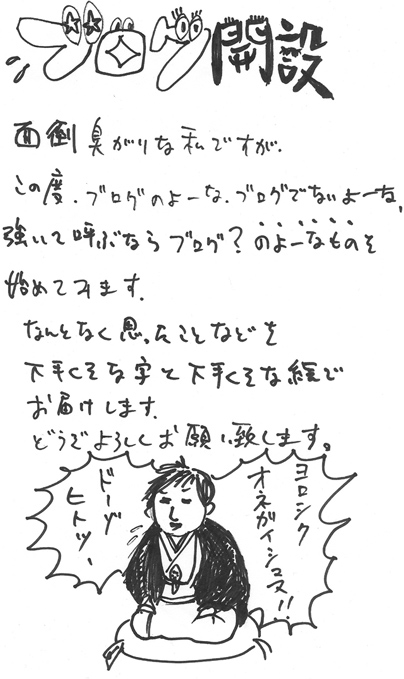 ブログ開設
面倒臭がりな私ですが、
この度、ブログのよーな、ブログでないよーな、
強いて呼ぶならブログ?のよーなものを
始めてみます。
なんとなく思ったことなどを
下手くそな字と下手くそな絵で
お届けします。
どうぞよろしくお願い致します。
ヨロシク
オネガイシマス!!
ドーゾ
ヒトツ、